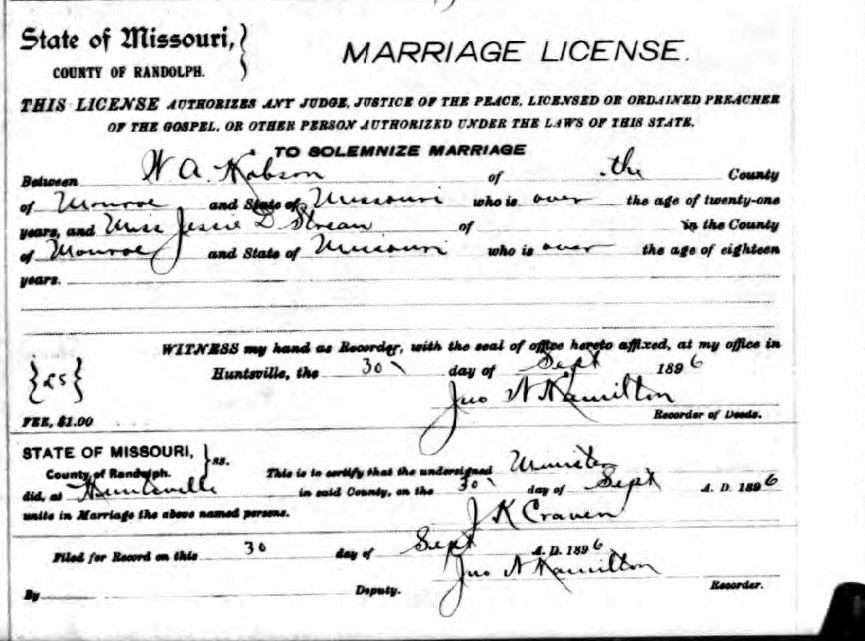 State of Missouri,
COUNTY OF RANDOLPH.
MARRIAGE LICENSE.
THIS LICENSE AUTHORIZES ANY JUDGE, JUSTICE OF THE PEACE, LICENSED OR ORDAINED PREACHER
OF THE GOSPEL, OR OTHER PERSON AUTHORIZED UNDER THE LAWS OF THIS STATE,
TO SOLEMNIZE MARRIAGE
Between W A. Hobson of the County
of Monroe and State of Missouri who is over the age of twenty-one
years, and Miss Jessie D of in the County
of Monroe and State of Missouri who is over the age of eighteen
years.
WITNESS my hand as Recorder, with the seal of office hereto affixed, at my office in
Huntsville, the 30 day of Sept 1896
LS
Jno N Hamilton
FEE, $1.00
Recorder of Deeds.
STATE OF MISSOURI,
County of Randolph. ss.
This is to certify that the undersigned Minister
did, at Huntsville in said County, on the 30 day of Sept A. D. 1896
unite in Marriage the above named persons.
J K Craven
Filed for Record on this 30 day of Sept A. D. 1896
Jno N Hamilton
By Deputy. Recorder.